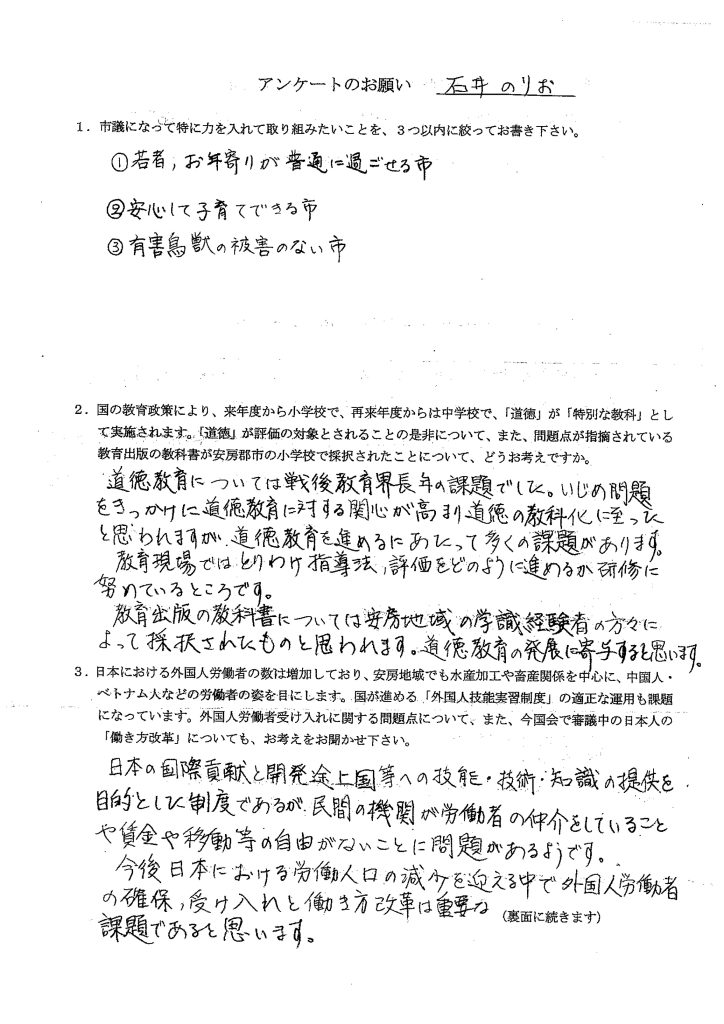 アンケートのお願い 石井 のりお
1．市議になって特に力を入れて取り組みたいことを、３つ以内に絞ってお書き下さい。
①若者，お年寄りが普通に過ごせる市
②安心して子育てできる市
③有害鳥獣の被害のない市
2．国の教育政策により、来年度から小学校で、再来年度からは中学校で、「道徳」が「特別な教科」とし
て実施されます。「道徳」が評価の対象とされることの是非について、また、問題点が指摘されている
教育出版の教科書が安房郡市の小学校で採択されたことについて、どうお考えですか。
道徳教育については戦後教育界長年の課題でした。いじめ問題
をきっかけに道徳教育に対する関心が高まり道徳の教科化に至った
と思われますが、道徳教育を進めるにあたって多くの課題があります。
教育現場ではとりわけ指導法，評価をどのように進めるか研修に
努めているところです。
教育出版の教科書については安房地域の学識経験者の方々に
よって採択されたものと思われます。道徳教育の発展に寄与すると思います。
3．日本における外国人労働者の数は増加しており、安房地域でも水産加工や畜産関係を中心に、中国人・
ベトナム人などの労働者の姿を目にします。国が進める「外国人技能実習制度」の適正な運用も課題
になっています。外国人労働者受け入れに関する問題点について、また、今国会で審議中の日本人の
「働き方改革」についても、お考えをお聞かせ下さい。
日本の国際貢献と開発途上国等への技能・技術・知識の提供を
目的とした制度であるが、民間の機関が労働者の仲介をしていること
や賃金や移動等の自由がないことに問題があるようです。
今後日本における労働人口の減少を迎える中で外国人労働者
の確保，受け入れと働き方改革は重要な （裏面に続きます）
課題であると思います。